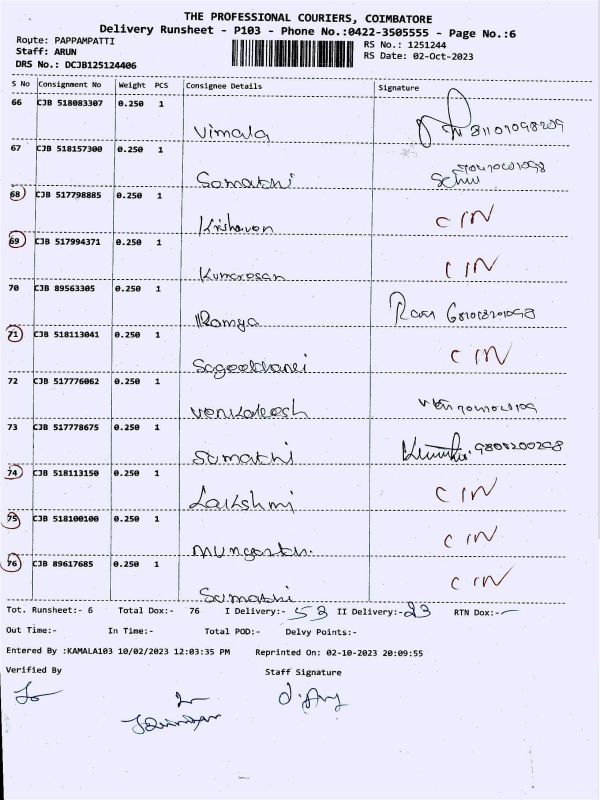 THE PROFESSIONAL COURIERS, COIMBATORE
Delivery Runsheet - P103 - Phone No.:0422-3505555 - Page No.:6
Route: PAPPAMPATTI
RS No.: 1251244
Staff: ARUN
RS Date: 02-Oct-2023
DRS No.: DCJB125124406
S No Consignment No Weight PCS Consignee Details Signature
66 CJB 518083307 0.250 1
Vimala
67 CJB 518157300 0.250 1
Samathi
68 CJB 517798885 0.250 1 CIN
69 CJB 517994371 0.250 1 CIN
Kumaresan
70 CJB 89563305 0.250 1
Ramya
71 CJB 518113041 0.250 1 CIN
72 CJB 517776062 0.250 1
Venkatesh
73 CJB 517778675 0.250 1
Sumathi
74 CJB 518113150 0.250 1 CIN
Lakshmi
75 CJB 518100100 0.250 1 CIN
76 CJB 89617685 0.250 1 CIN
Sumathi
Tot. Runsheet:- 6 Total Dox:- 76 I Delivery:- 53 II Delivery:- 23 RTN Dox:- -
Out Time:- In Time:- Total POD:- Delvy Points:-
Entered By :KAMALA103 10/02/2023 12:03:35 PM Reprinted On: 02-10-2023 20:09:55
Verified By Staff Signature